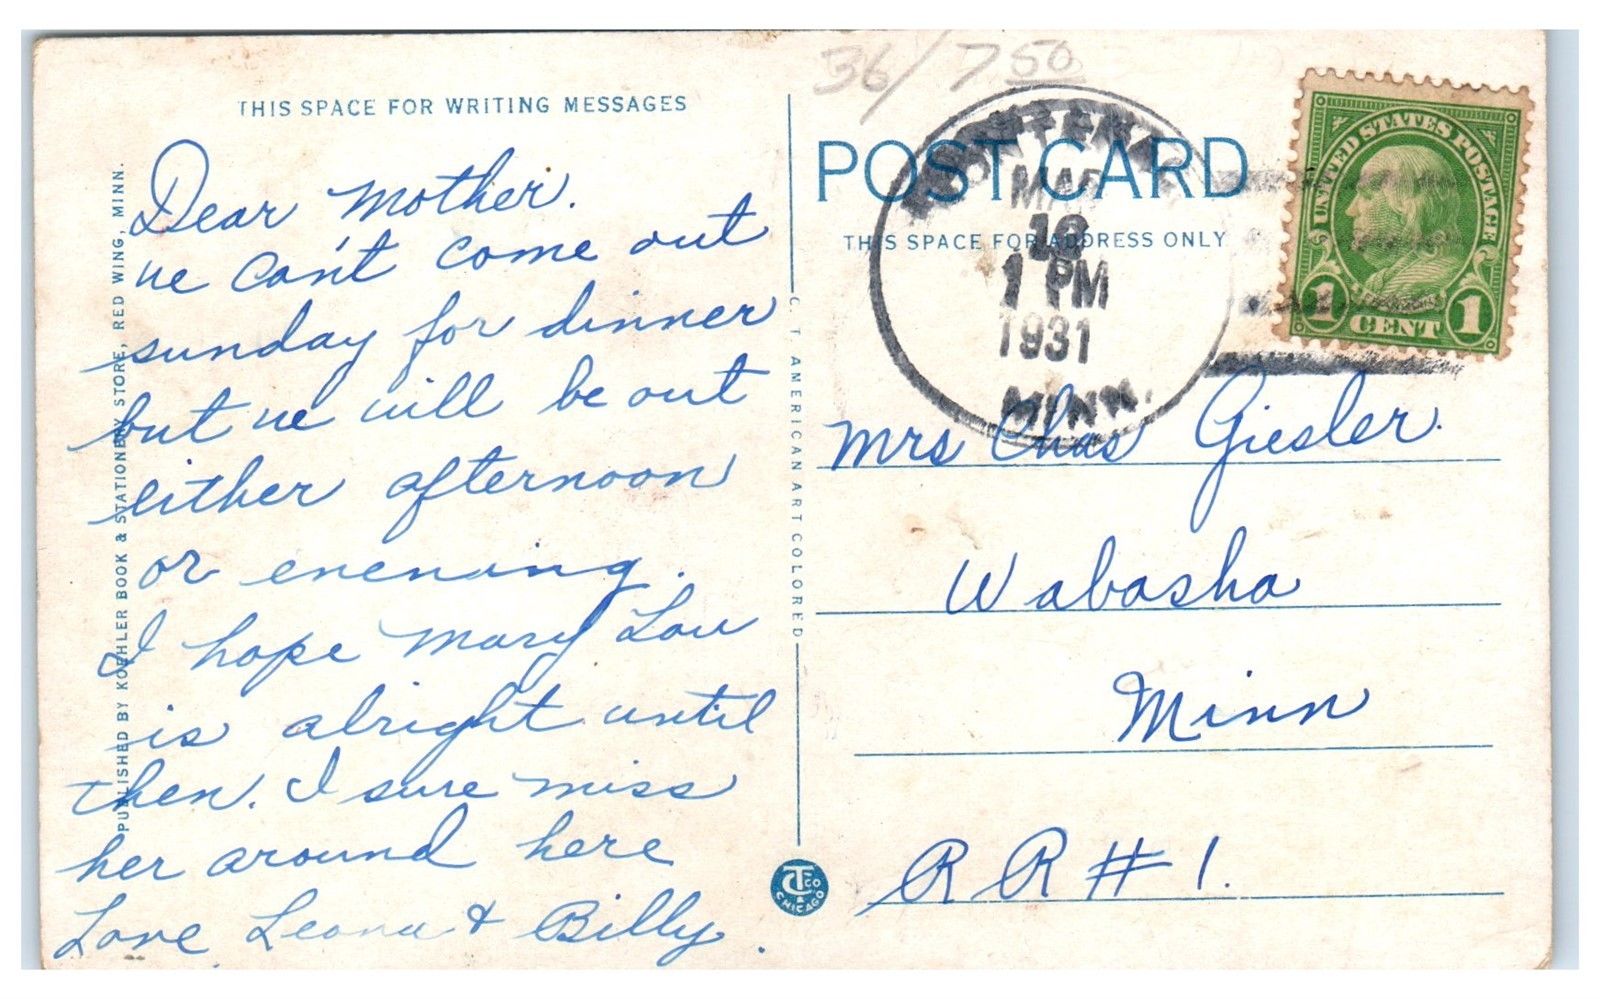 36/7 50
THIS SPACE FOR WRITING MESSAGES
Dear Mother.
we can't come out
sunday for dinner
but we will be out
either afternoon
or evening.
I hope Mary Lou
is alright until
then. I sure miss
her around here
Love Leona & Billy.
PUBLISHED BY KOEHLER BOOK & STATIONERY STORE, RED WING, MINN.
C. T. AMERICAN ART COLORED
CT CO
CHICAGO
POST CARD
THIS SPACE FOR ADDRESS ONLY
MAR
1 PM
1931
MINN.
UNITED STATES POSTAGE
1 CENT 1
Mrs Chas Giesler.
Wabasha
Minn
R R # 1.